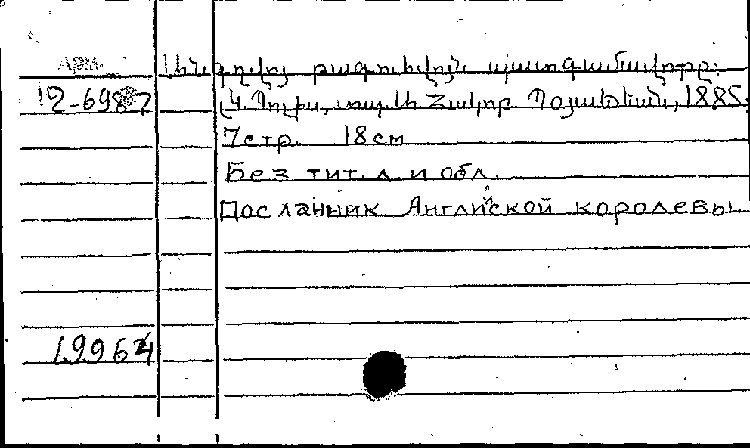 Арм. Անգղիոյ թագուհւոյն պատգամաւորը:
12-6987 Կ. Պոլիս, տպ. Յակոբ Պօյաճեան, 1885.
7стр. 18см
Без тит. л. и обл.
Посланник Английской королевы
19964